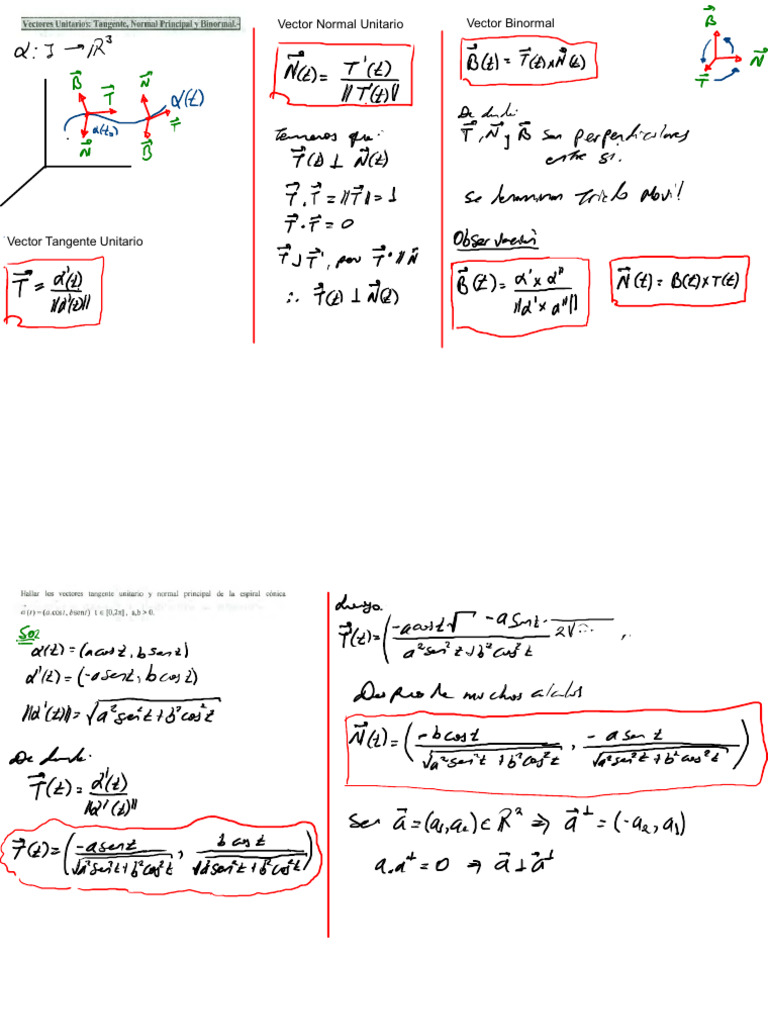 Vectores Unitarios: Tangente, Normal Principal y Binormal.-
α : I → R³
B⃗ T⃗ N⃗ α(t)
α(t₀) T⃗
N⃗ B⃗
Vector Tangente Unitario
T⃗ = α'(t) / ||α'(t)||
Vector Normal Unitario
N⃗(t) = T'(t) / ||T'(t)||
Tenemos que:
T⃗(t) ⊥ N⃗(t)
T⃗ . T⃗ = ||T⃗|| = 1
T⃗ · T⃗' = 0
T⃗ ⊥ T⃗', pero T⃗' // N⃗
∴ T⃗(t) ⊥ N⃗(t)
Vector Binormal
B⃗(t) = T⃗(t) x N⃗(t)
B⃗
N⃗
T⃗
De donde:
T⃗, N⃗ y B⃗ son perpendiculares
entre si.
se denominan Triedo Movil
Observación
B⃗(t) = α' x α'' / ||α' x α''||
N⃗(t) = B(t) x T(t)
Hallar los vectores tangente unitario y normal principal de la espiral cónica
α(t) = (a.cost, bsent) t ∈ [0,2π], a,b > 0.
Sol
α(t) = (a cost, b sent)
α'(t) = (-a sent, b cost)
||α'(t)|| = √(a² sen²t + b² cos²t)
De donde:
T⃗(t) = α'(t) / ||α'(t)||
T⃗(t) = ( -a sent / √(a² sen²t + b² cos²t) , b cost / √(a² sen²t + b² cos²t) )
Luego.
T⃗'(t) = ( -a cost √ - a sent · / 2√... / a² sen²t + b² cos²t ,
Después de muchos calculos
N⃗(t) = ( -b cost / √(a² sen²t + b² cos²t) , - a sent / √(a² sen²t + b² cos²t) )
Sea a⃗ = (a₁, a₂) ∈ R² ⇒ a⃗^⊥ = (-a₂, a₁)
a . a^⊥ = 0 ⇒ a⃗ ⊥ a⃗^⊥